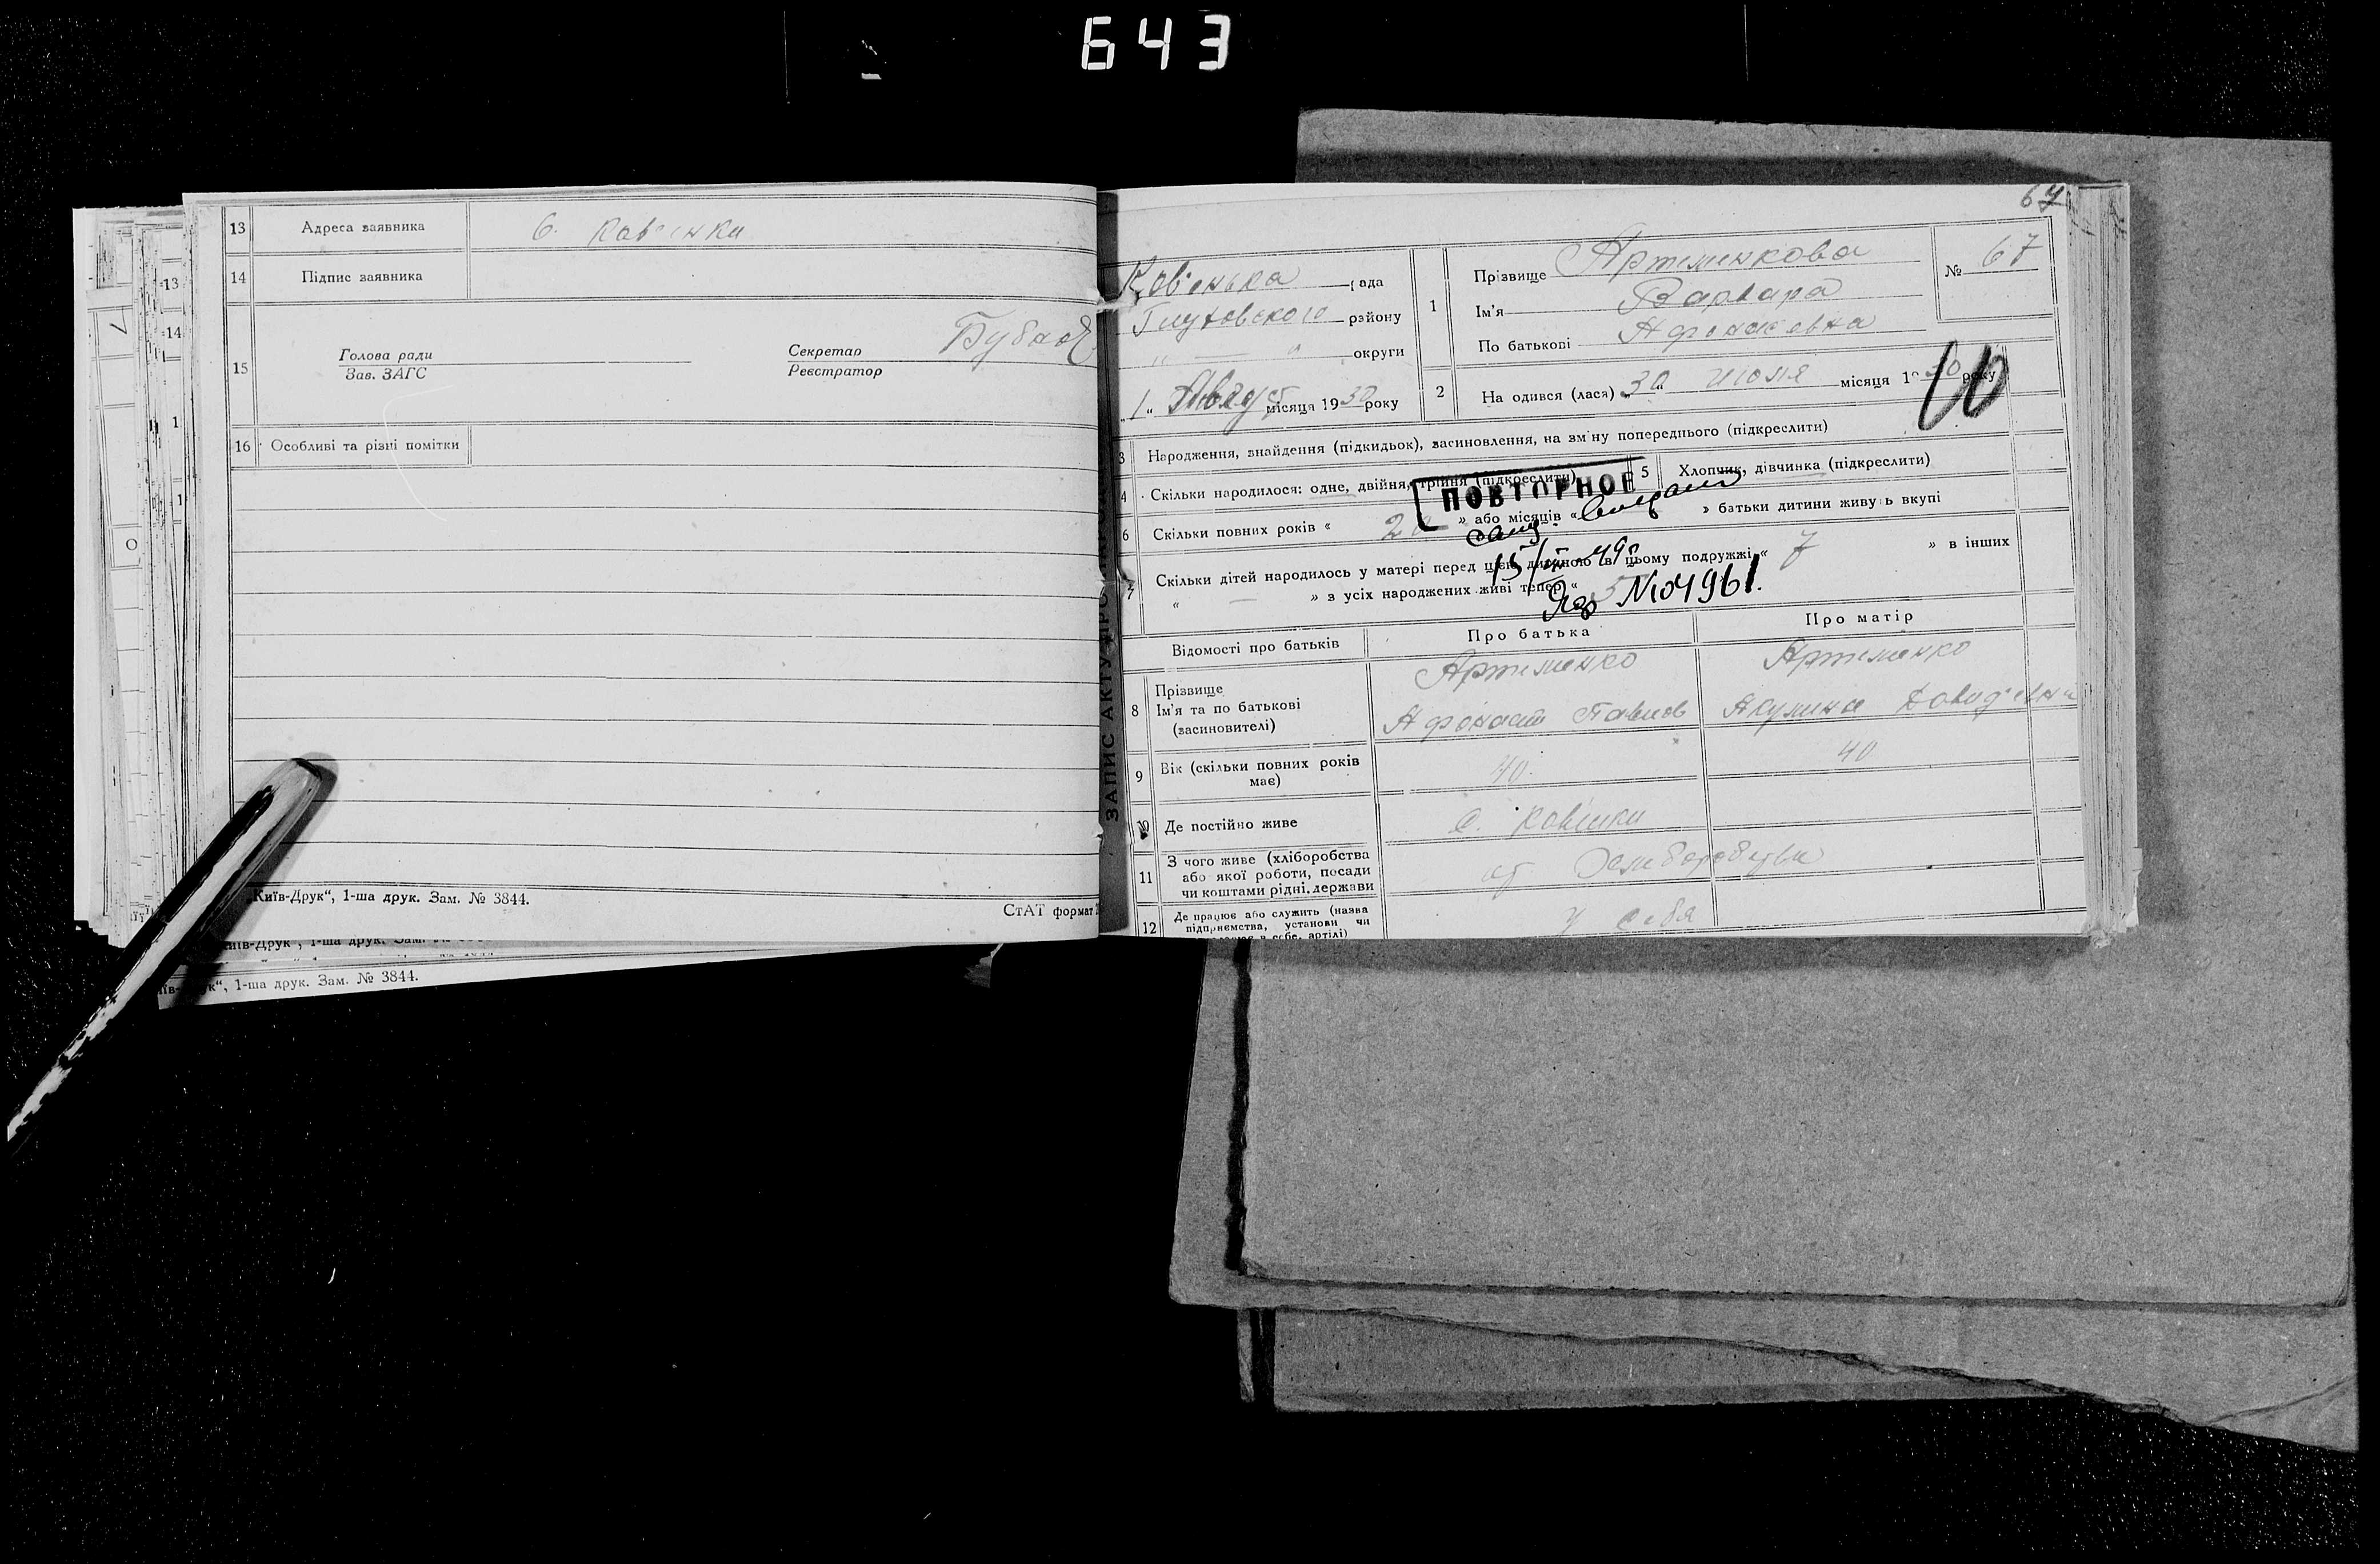 643
13 Адреса заявника с. Кавенки
14 Підпис заявника
15 Голова ради
Зав. ЗАГС
Секретар
Реєстратор
16 Особливі та різні помітки
„Київ-Друк“, 1-ша друк. Зам. № 3844.
СтАТ формат
1-ша друк. Зам.
1-ша друк. Зам. № 3844.
ЗАПИС АКТУ ПРО
67
Ковенька рада
Глуховского району
округи
„1„ Август місяця 1930 року
1 Прізвище Артеменкова
Ім'я Варвара
По батькові Афонасевна
№ 67
2 На одився (лася) 30 июля місяця 1930 року
3 Народження, знайдення (підкидьок), засиновлення, на зміну попереднього (підкреслити)
4 Скільки народилося: одне, двійня, трійня (підкреслити)
5 Хлопчик, дівчинка (підкреслити)
ПОВТОРНОЕ
6 Скільки повних років « » або місяців « » батьки дитини живуть вкупі
7 Скільки дітей народилось у матері перед цією дитиною в цьому подружжі « 7 » в інших
« — » з усіх народжених живі тепер « 5
№ 04961.
Відомості про батьків
Про батька
Про матір
8 Прізвище
Ім'я та по батькові
(засиновителі)
Артеменко
Афонасит Павлов
Артеменко
Акулина Давид'евна
9 Вік (скільки повних років
має)
40.
40
10 Де постійно живе
с. Ковенки
11 З чого живе (хліборобства
або якої роботи, посади
чи коштами рідні, держави
от Хлиборобства
12 Де працює або служить (назва
підприємства, установи чи
в себе, артілі)
у себя